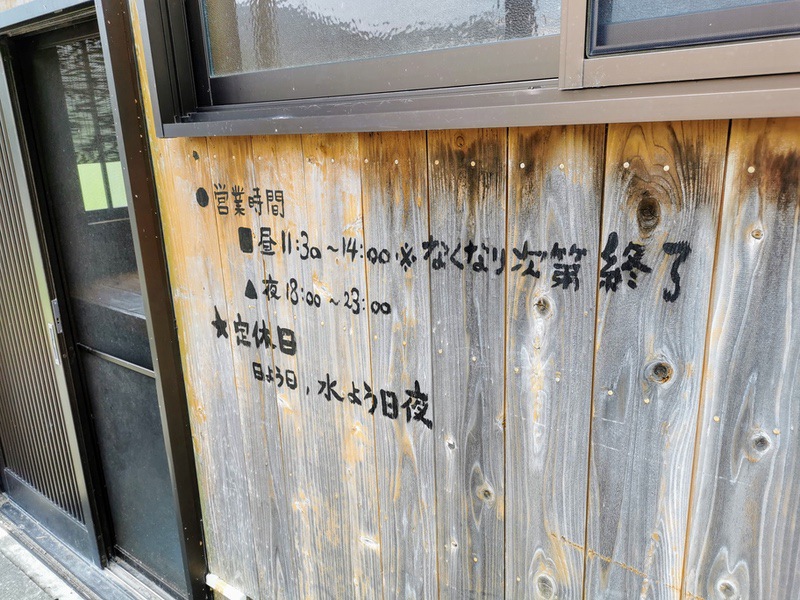 ●営業時間
■昼11:30~14:00※なくなり次第終了
▲夜18:00~23:00
★定休日
日よう日,水よう日夜